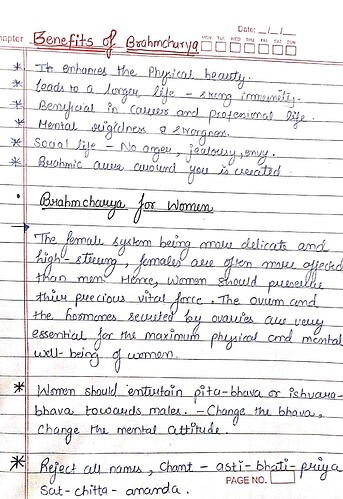 Date: __/__/__
hapter Benefits of Brahmcharya MON TUE WED THU FRI SAT SUN
* It enhances the Physical beauty.
* Leads to a longer life - strong immunity.
* Beneficial in Career and professional life.
* Mental rigidness & strongness.
* Social life - No anger, jealousy, envy.
* Brahmic aura around you is created.
• Brahmcharya for Women
→ The female system being more delicate and
high-strung, females are often more affected
than men. Hence, Women should preserve
their precious vital force. The ovum and
the hormones secreted by ovaries are very
essential for the maximum physical and mental
well-being of women.
* Women should entertain pita-bhava or ishvara-
bhava towards males. - Change the bhava,
change the mental attitude.
* Reject all names, Chant - asti-bhati-priya
PAGE NO.
Sat-chitta-ananda.